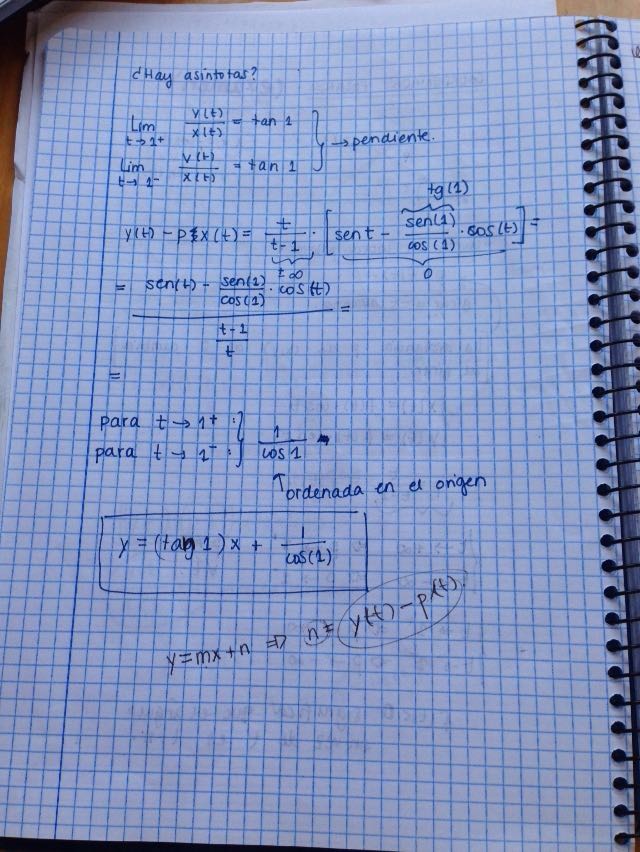 ¿Hay asíntotas?
Lim t→1⁺ y(t)/x(t) = tan 1
Lim t→1⁻ y(t)/x(t) = tan 1 } → pendiente.
tg(1)
y(t) - p x(t) = t/(t-1) · [sen t - sen(1)/cos(1) · cos(t)] =
±∞ 0
= (sen(t) - sen(1)/cos(1) · cos(t)) / ((t-1)/t) =
=
para t → 1⁺ :
para t → 1⁻ : } 1/cos 1
↑ ordenada en el origen
y = (tag 1) x + 1/cos(1)
y = mx + n ⇒ n = y(t) - p(t).